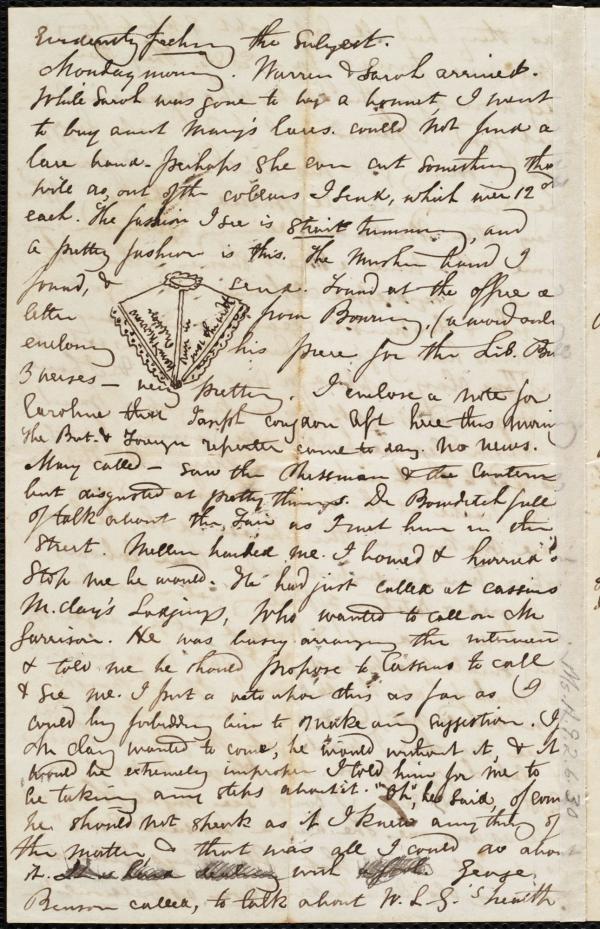 Evidently feeling the subject.
Monday morning. Warren & Sarah arrived.
While Sarah was gone to buy a bonnet I went
to buy aunt Mary's laces. could not find a
lace band - perhaps she can cut something the
wile as, out of the collars I send, which were 12
each. The fashion I see is strait trimming, and
a pretty fashion is this. The muslin band I
found, & send. Found at the office a
letter from Bowring, (a word only
enclosing his piece for the Lib. Be
3 verses - very pretty. I enclose a note for
Caroline that Joseph Congdon left here this morning
The Brit. & Foreign reporter came to day. No news.
Mary called - saw the & the
but disgusted at pretty things. Dr Bowditch full
of talk about the Fair as I met him in the
Street. Mellen hailed me. I bowed & hurried
Stop me he would. He had just called at Cassius
M. Clay's Lodgings, who wanted to call on Mr
Garrison. He was busy arranging the interview
& told me he should propose to Cassius to call
& see me. I put a veto upon this as far as I
could by forbidding him to make any suggestion. If
Mr Clay wanted to come, he would without it, & it
would be extremely improper I told him for me to
be taking any steps about it. "Oh", he said, of course
he should not speak as if I knew anything of
the matter & that was all I could do about
it. with George
Benson called, to talk about W. L. G.'s health
Ms.A.9.2.6.30